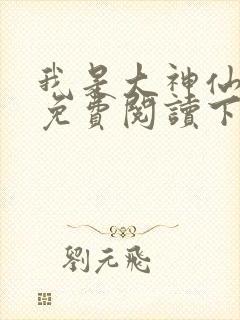 我是大神仙
免費閱讀下
劉元飛